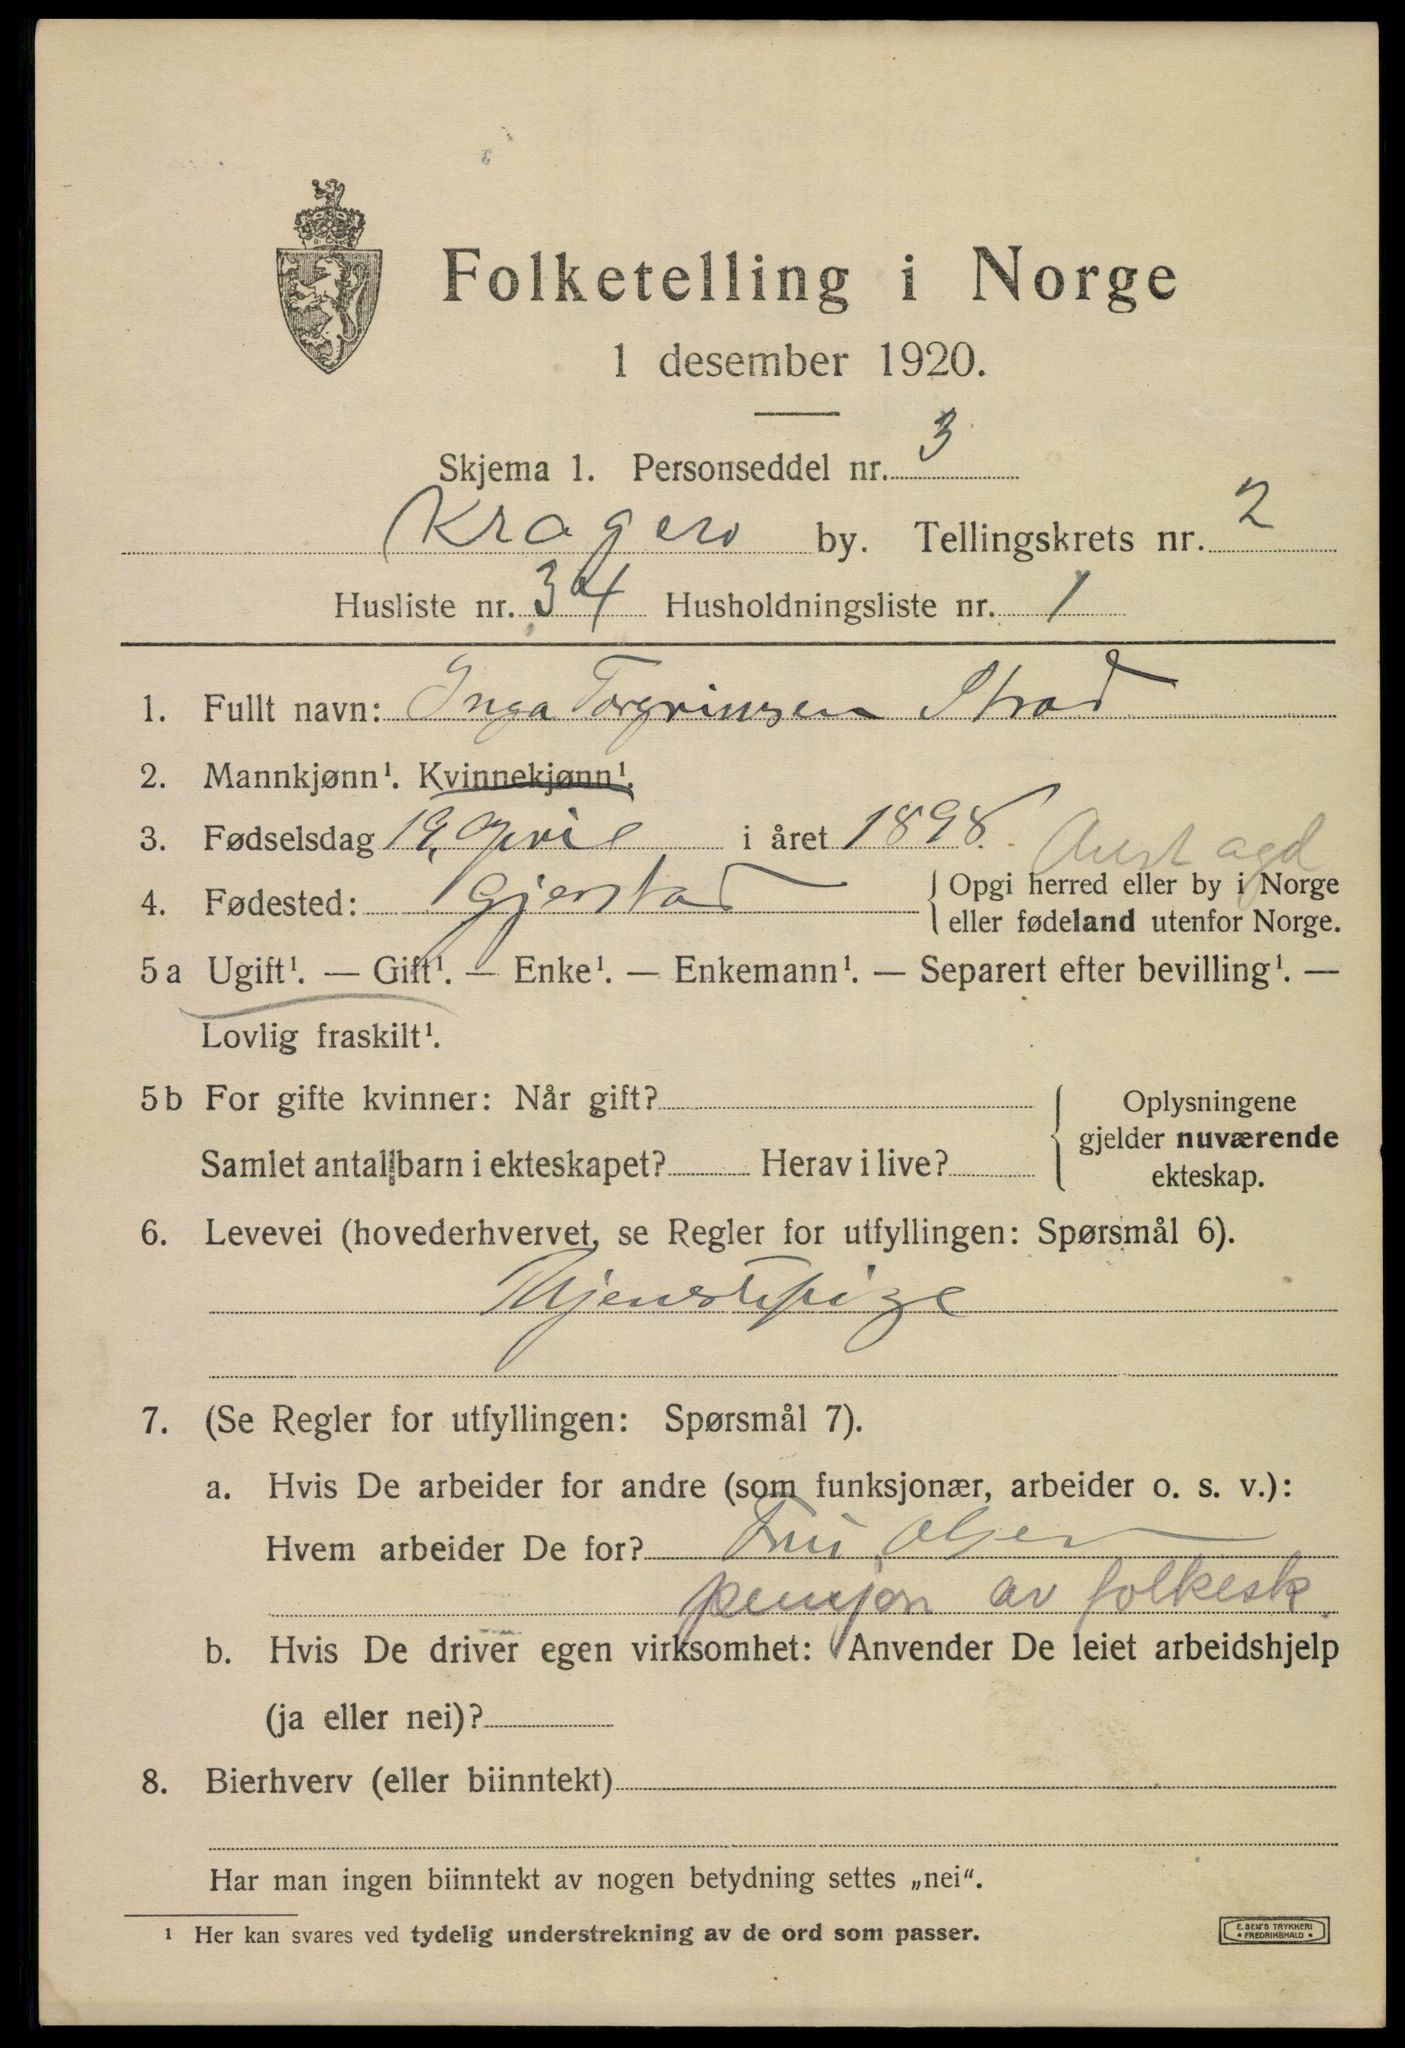 Folketelling i Norge
1 desember 1920.
Skjema 1. Personseddel nr. 3
Kragerø by. Tellingskrets nr. 2
Husliste nr. 34 Husholdningsliste nr. 1
1. Fullt navn: Inga Torgrimsen Strad
2. Mannkjønn¹. Kvinnekjønn¹.
3. Fødselsdag 19. April i året 1898.
Aust agd
4. Fødested: Gjerstad { Opgi herred eller by i Norge
eller fødeland utenfor Norge.
5a Ugift¹. — Gift¹. — Enke¹. — Enkemann¹. — Separert efter bevilling¹. —
Lovlig fraskilt¹.
5b For gifte kvinner: Når gift? { Oplysningene
gjelder nuværende
Samlet antal barn i ekteskapet? Herav i live? ekteskap.
6. Levevei (hovederhvervet, se Regler for utfyllingen: Spørsmål 6).
Thjenstepige
7. (Se Regler for utfyllingen: Spørsmål 7).
a. Hvis De arbeider for andre (som funksjonær, arbeider o. s. v.):
Hvem arbeider De for? Fru Olsen
pensjon av folkesk.
b. Hvis De driver egen virksomhet: Anvender De leiet arbeidshjelp
(ja eller nei)?
8. Bierhverv (eller biinntekt)
Har man ingen biinntekt av nogen betydning settes „nei“.
¹ Her kan svares ved tydelig understrekning av de ord som passer.
E. SEM'S TRYKKERI
• FREDRIKSHALD •